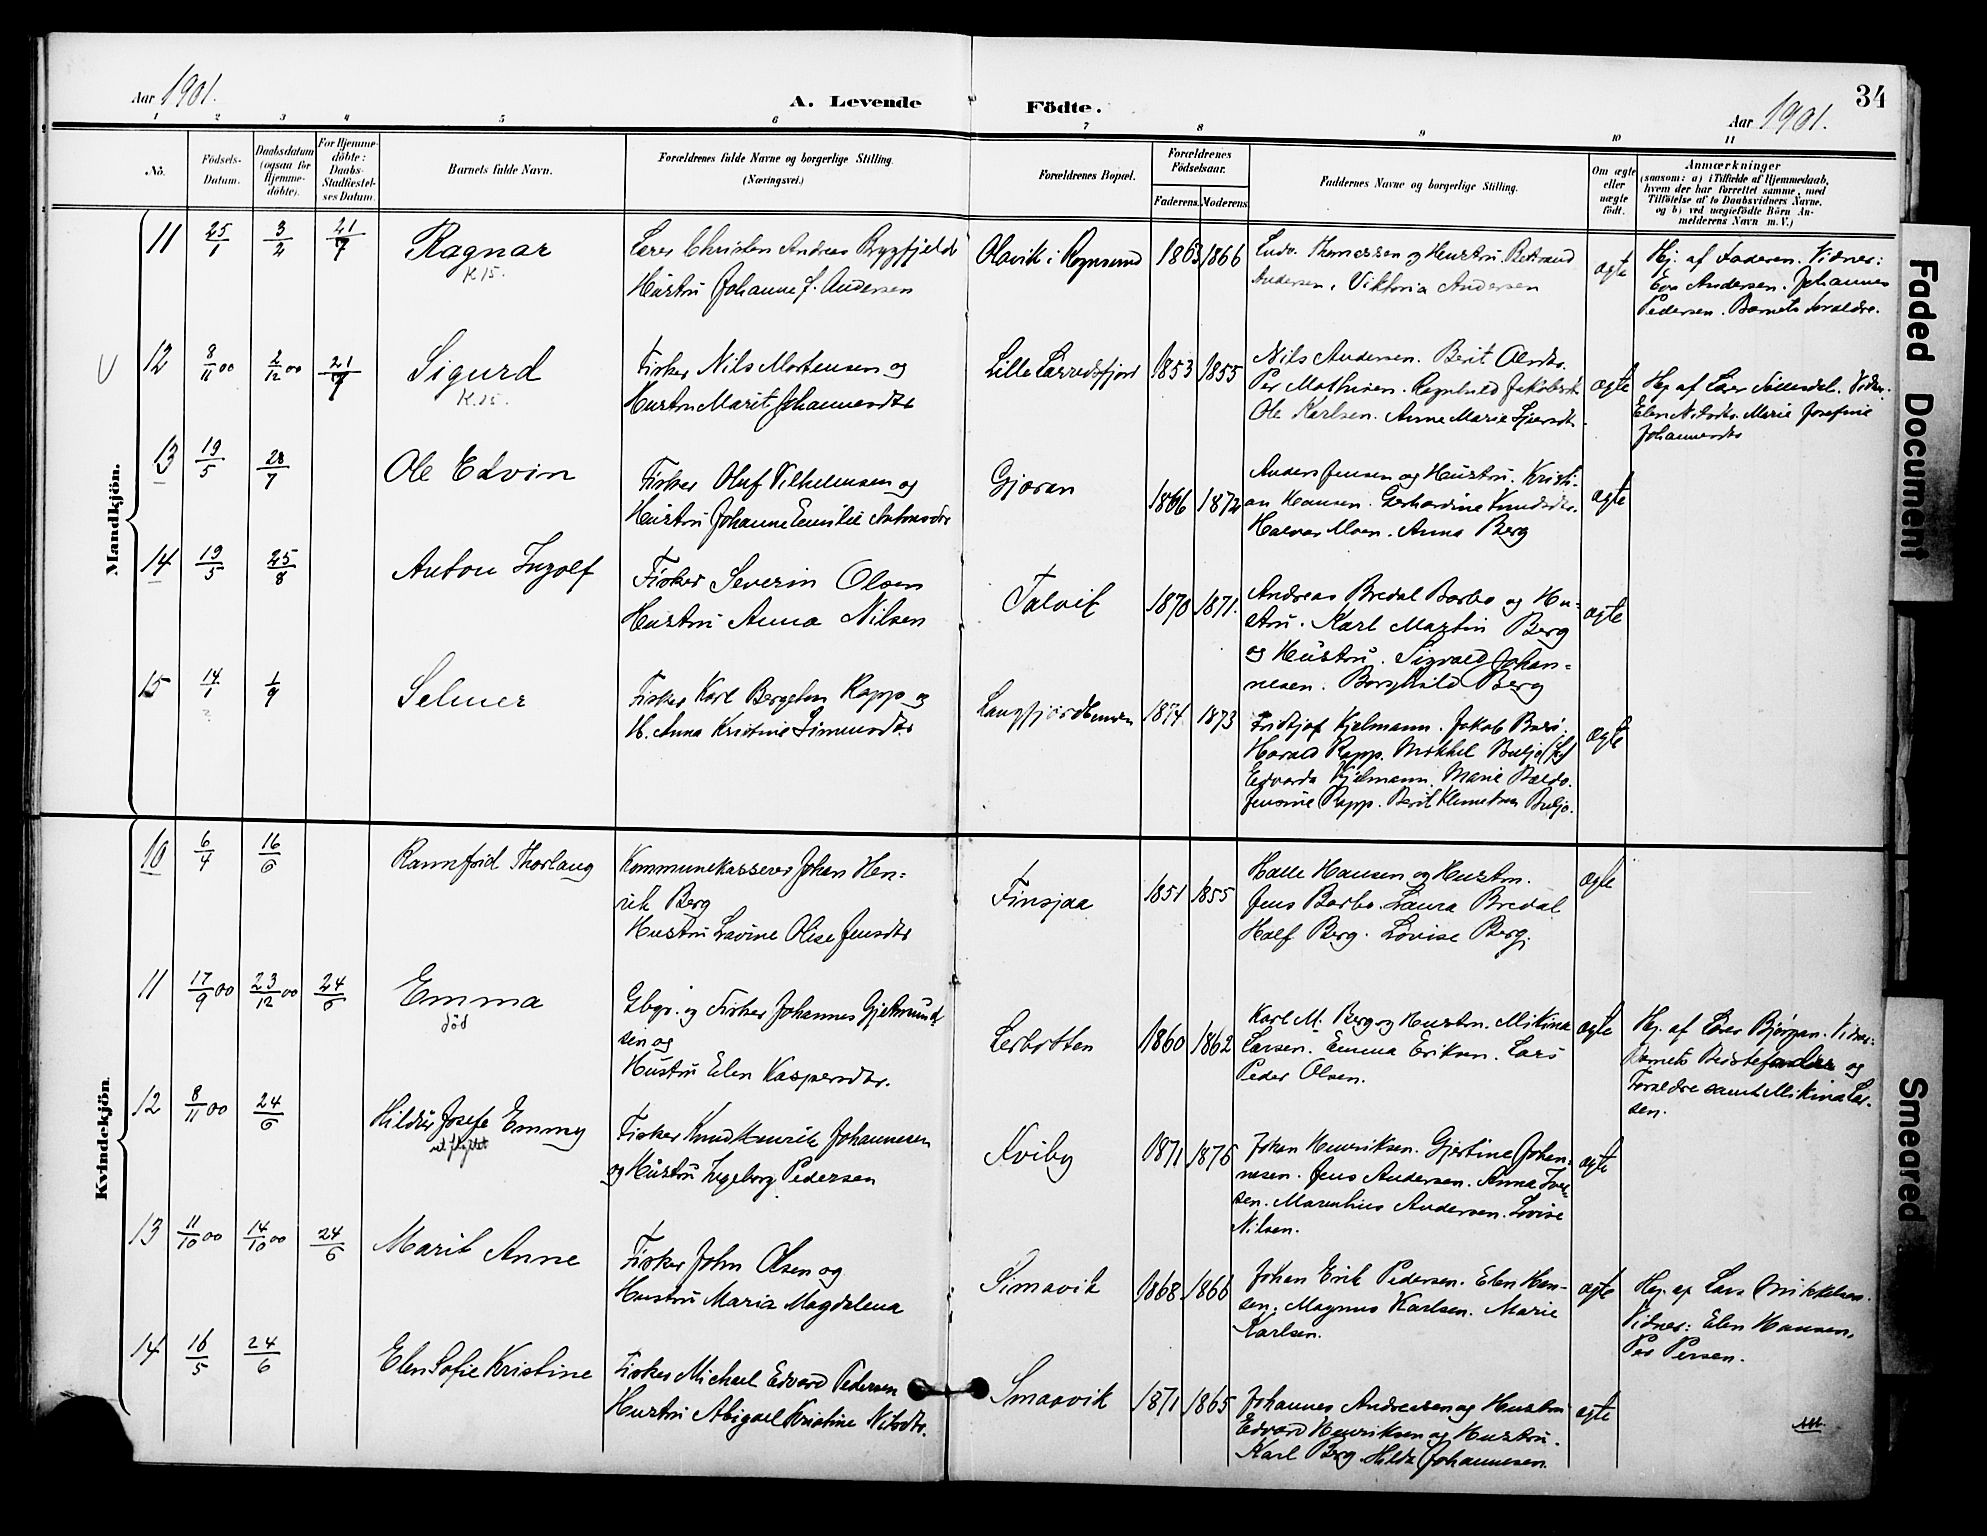 Aar 1901.
A. Levende Födte.
Aar 1901.
34
1 2 3 4 5 6 7 8 9 10 11
No. Födsels-Datum. Daabsdatum (ogsaa for Hjemmedöbte). For Hjemmedöbte: Daabs-Stadfæstelses Datum. Barnets fulde Navn. Forældrenes fulde Navne og borgerlige Stilling. (Næringsvei.) Forældrenes Bopæl. Forældrenes Födselsaar. Faderens. Moderens. Faddernes Navne og borgerlige Stilling. Om ægte eller uægte födt.
Anmærkninger
(saasom: a) i Tilfælde af Hjemmedaab,
hvem der har forrettet samme, med
Tilföielse af to Daabsvidners Navne,
og b) ved uægtefödte Börn An-
melderens Navn m. V.)
Mandkjön.
11 25/1 3/2 21/7 Ragnar
K 15.
Lærer Christen Andreas Brygfjeld
Hustru Johanne J. Andersen
Olavik i Rognsund 1863 1866
Ludv. Thomassen og Hustru.
Andersen, Viktoria Andersen
ægte
Hj. af Faderen. Vidner:
Eva Andersen. Johannes
Pedersen. Barnets Forældre.
12 8/11 00 2/12 00 21/7 Sigurd
K. 15.
Fisker Nils Mortensen og
Hustru Marit Johannesdtr
Lille Lerresfjord 1853 1855
Nils Andersen. Berit
Per Mathisen. Ragnhild
Ole Karlsen. Anne Marie
ægte
Hj. af Lærer Vidn.
Elen Nilsdtr. Marie Josefine
Johannesdtr
13 19/5 28/7 Ole Edvin
Fisker Oluf Vilhelmsen og
Hustru Johanne Emilie Antonsdtr
Gjøran 1866 1872
Anders Jensen og Hustru. Kristi-
an Hansen. Gerhardine Knudsdtr.
Halvar Moen. Anna Berg
ægte
14 19/5 25/8 Anton Ingolf
Fisker Severin Olsen
Hustru Anna Nilsen
Talvik 1870 1871.
Andreas Bredal Barbo og Hu-
stru. Karl Martin Berg
og Hustru. Sigvald Johan-
nesen. Borghild Berg
ægte
15 14/1 1/9 Selmer
?
Fisker Karl Bergeton Rapp og
H. Anna Kristine Simonsdtr
Langfjordbunden 1874 1873
Fridtjof Kjelmann. Jakob
Harald Rapp. Mikkel Buljo
Edvarda Kjelmann. Marie
Jensine Rapp. Berit Klemetsen Buljo.
ægte
Kvindekjön.
10 6/4 16/6 Rannfrid Thorlaug
Kommunekasserer Johan Hen-
rik Berg
Hustru Lavine Olise Jensdtr
Finsjaa 1851 1855
Halle Hansen og Hustru.
Jens Barbo. Laura Bredal
Half Berg. Lovise Berg.
ægte
11 17/9 00 23/12 00 24/6 Emma
død
Gbgr. og Fisker Johannes Gjetmund-
sen og
Hustru Elen Kaspersdtr.
Lerbotten 1860 1862
Karl M. Berg og Hustru. Mikina
Larsen. Emma Eriksen. Lars
Peder Olsen.
ægte
Hj. af Lærer Bjørgan. Vidner:
Barnets Bedstefader og
Forældre samt Mikina Lar-
sen.
12 8/11 00 24/6 Hildur Josefe Emmy
utflyttet
Fisker Knud Henrik Johannesen
og Hustru Ingeborg Pedersen
Kviby 1871 1876
Johan Henriksen. Gjertine Johan-
nesen. Jens Andersen. Anna Iver-
sen. Marenhius Andersen. Lovise
Nilsen.
ægte
13 11/10 00 14/10 00 24/6 Marit Anne
Fisker John Olsen og
Hustru Maria Magdalena
Simavik 1868 1866
Johan Erik Pedersen. Elen Han-
sen. Magnus Karlsen. Marie
Karlsen.
ægte
Hj. af Lars Mikkelsen.
Vidner: Elen Hansen,
Per Persen.
14 16/5 24/6 Elen Sofie Kristine
Fisker Michael Edvard Pedersen
Hustru Abigael Kristine Nilsdtr.
Smaavik 1871 1865
Johannes Andreasen og Hustru
Edvard Henriksen og Hustru.
Karl Berg. Hilda Johannesen.
ægte
Faded Document
Smeared